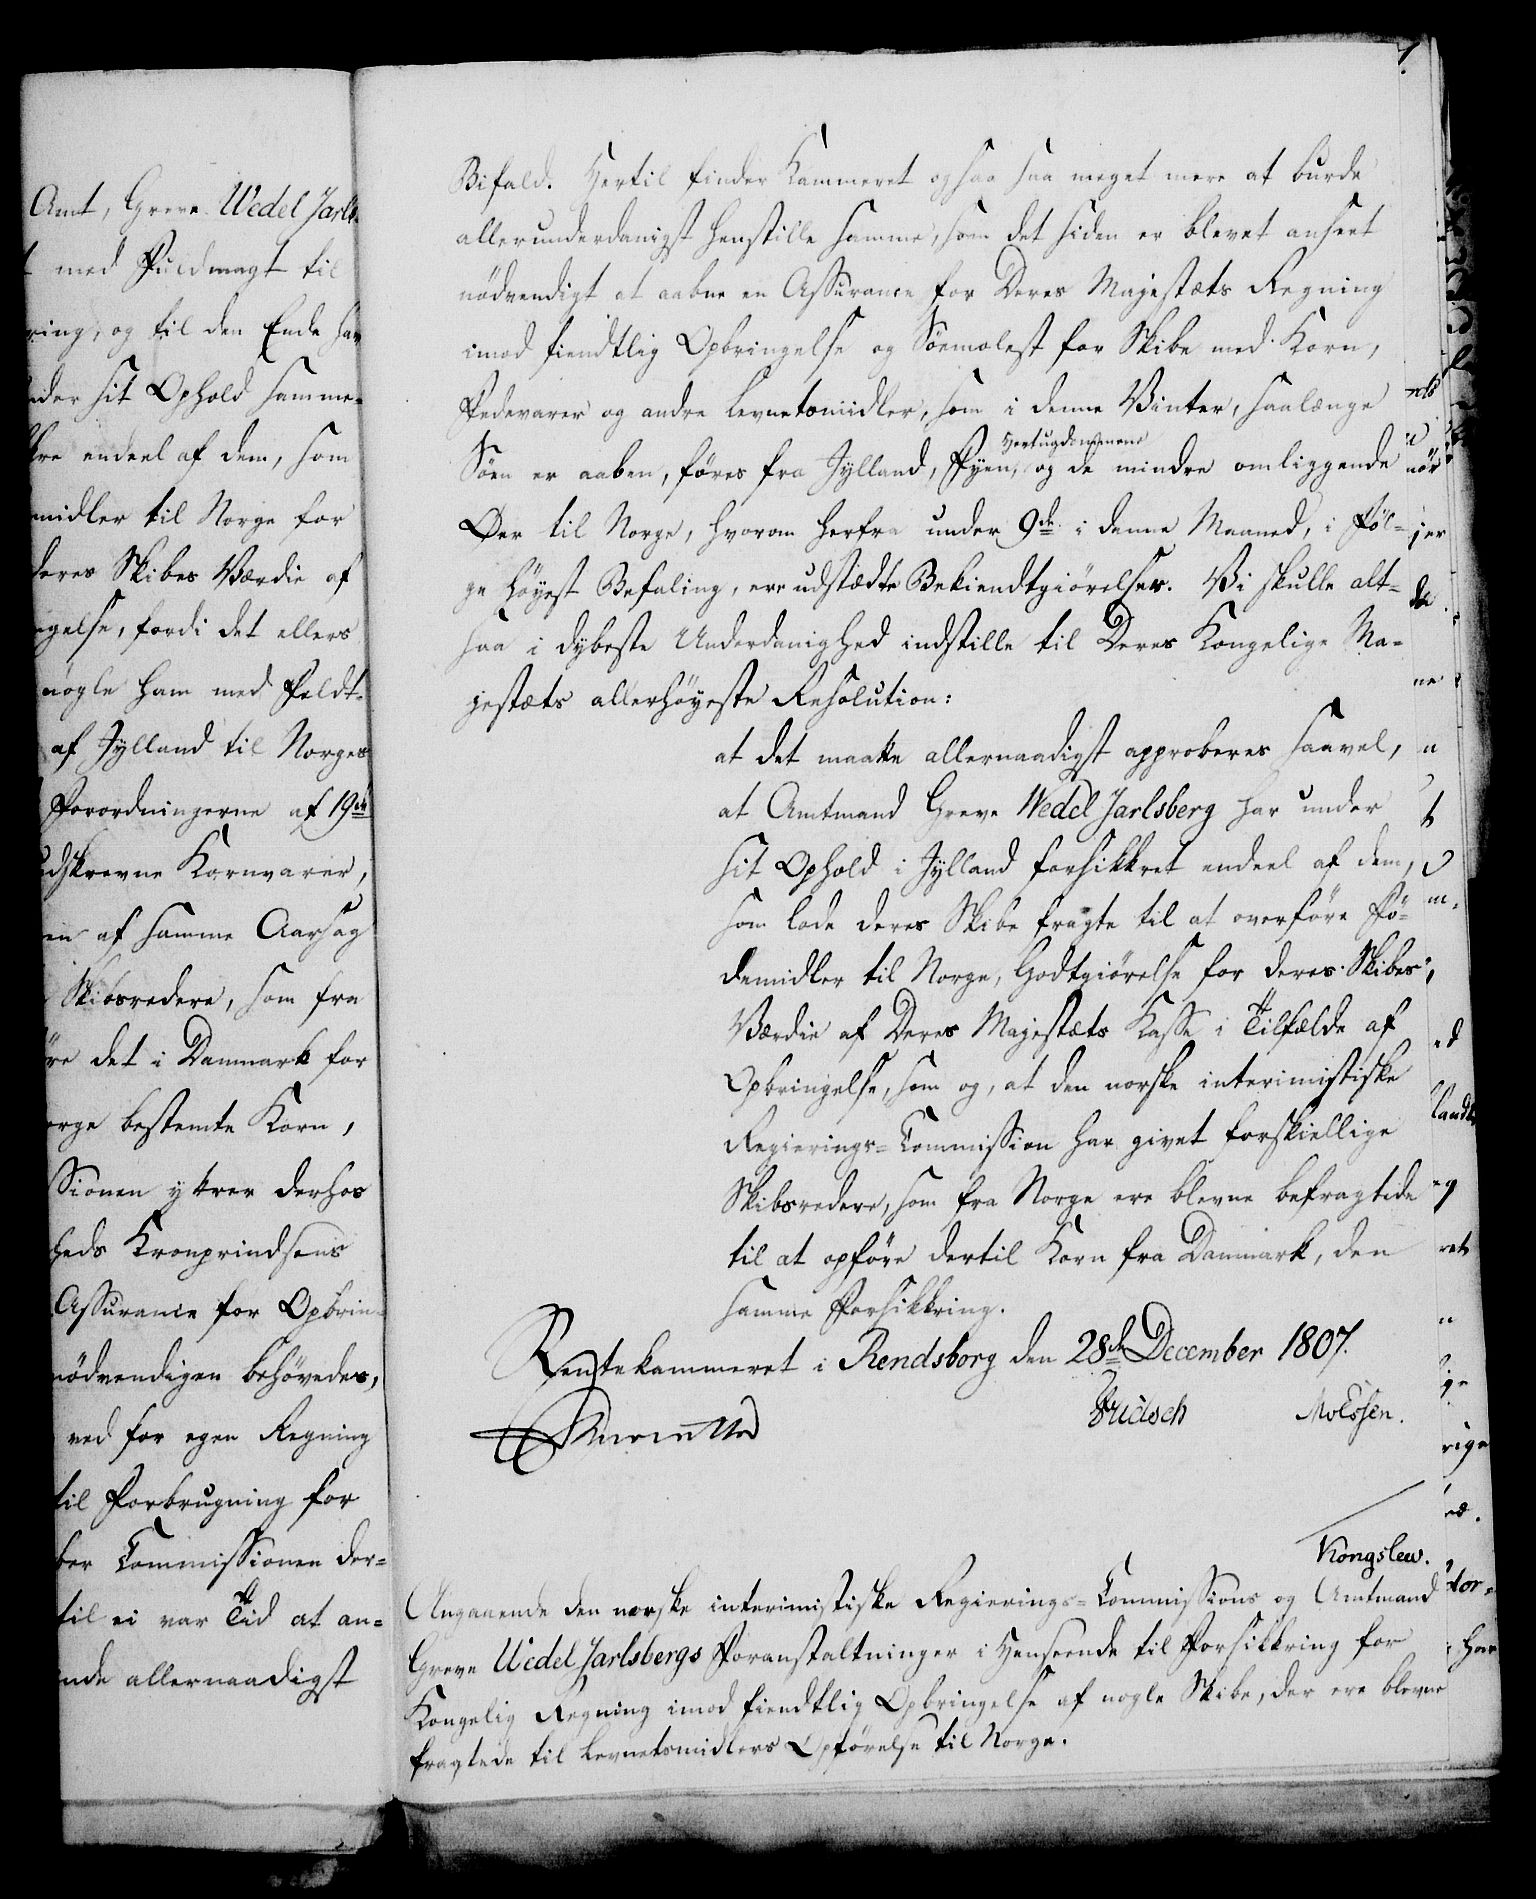 Amt, Greve Wedel Jarls-
med Fuldmagt til
ring, og til den Ende har
under sit Ophold samme-
endeel af dem, som
midler til Norge for
deres Skibes Værdie af
gelse, fordi det ellers
nogle ham med Feldt-
af Jylland til Norges
Forordningerne af 19de
udskrevne Kornvarer,
en af samme Aarsag
Skibsredere, som fra
øre det i Danmark for
orge bestemte Korn,
ssionen yttrer derhos
heds Kronprindsens
Assurance for Opbrin-
nødvendigen behøvedes,
ved for egen Regning
til Forbrugning for
ber Commissionen der-
til ei var Tid at an-
nde allernaadigst
Bifald. Hertil finder Kammeret ogsaa saa meget mere at burde
allerunderdanigst henstille samme, som det siden er blevet anseet
nödvendigt at aabne en Assurance for Deres Majestæts Regning
imod fiendtlig Opbringelse og Söemolest for Skibe med Korn,
Fedevarer og andre Levnetsmidler, som i denne Vinter, saalænge
Hertugdömmene
Söen er aaben, föres fra Jylland, Fyen, og de mindre omliggende
Øer til Norge, hvorom herfra under 9de i denne Maaned, i Föl-
ge höyest Befaling, ere udstædte Bekiendtgiörelser. Vi skulle alt-
saa i dybeste Underdanighed indstille til Deres Kongelige Ma-
jestæts allerhöyeste Resolution:
at det maatte allernaadigst approberes saavel,
at Amtmand Greve Wedel Jarlsberg har under
sit Ophold i Jylland forsikkret endeel af dem,
som lode deres Skibe fragte til at overföre Fö-
demidler til Norge, Godtgiörelse for deres Skibes
Værdie af Deres Majestæts Kasse i Tilfælde af
Opbringelse, som og, at den norske interimistiske
Regierings-Commission har givet forskiellige
Skibsredere, som fra Norge ere blevne befragtede
til at opföre dertil Korn fra Danmark, den
samme Forsikkring.
Rentekammeret i Rendsborg den 28de December 1807.
Fridsch Moessen.
Kongslew.
Angaaende den norske interimistiske Regierings-Commissions og Amtmand
Greve Wedel Jarlsbergs Foranstaltninger i Henseende til Forsikkring for
Kongelig Regning imod fiendtlig Opbringelse af nogle Skibe, der ere blevne
fragtede til Levnetsmidlers Opförelse til Norge.